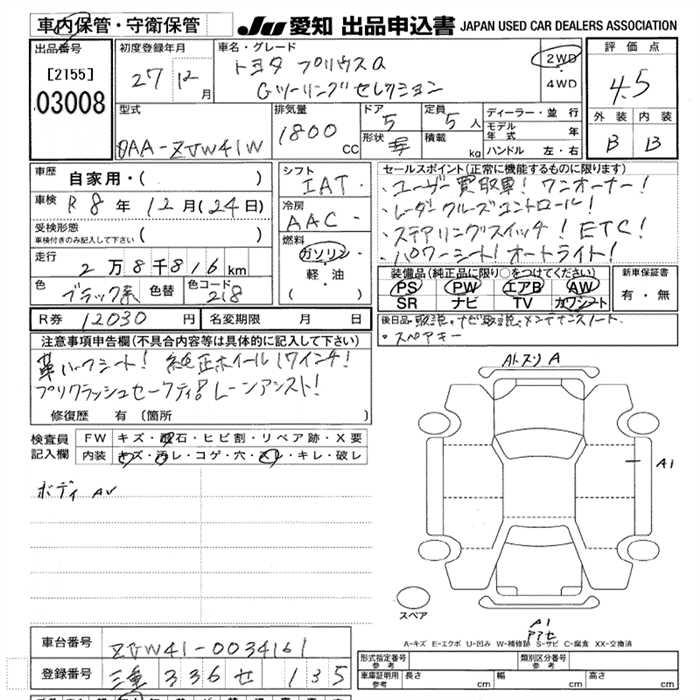 車内保管・守衛保管
JU 愛知 出品申込書 JAPAN USED CAR DEALERS ASSOCIATION
出品番号
[2155]
03008
初度登録年月
27 12月
車名・グレード
トヨタ プリウスα
Gツーリングセレクション
2WD
4WD
評価点
4.5
外装 内装
B B
型式
DAA-ZVW41W
排気量
1800 cc
ドア 5
形状
定員 5 人
積載 kg
ディーラー・並行
モデル年式 年
ハンドル 左・右
車歴 自家用・( )
車検 R8年12月(24日)
受検形態
車検付きのみ記入して下さい ( )
走行 2万8千816km
色 ブラック系 色替 色コード 218
シフト
IAT・
冷房
AAC・
燃料
ガソリン・
軽・油
( )
セールスポイント(正常に機能するものに限ります)
・ユーザー買取車! ワンオーナー!
・レーダークルーズコントロール!
・ステアリングスイッチ! ETC!
・パワーシート! オートライト!
装備品(純正品に限り○をつけてください)
PS PW エアB AW
SR ナビ TV カワシート
新車保証書
有・無
R券 12030円 名変期限 月 日
後日品 取説、ナビ取説、メンテナンスノート
・スペアキー
注意事項申告欄(不具合内容等は具体的に記入して下さい)
革ハーフシート! 純正ホイール17インチ!
プリクラッシュセーフティ! レーンアシスト!
修復歴 有(箇所 )
検査員記入欄
FW キズ・飛石・ヒビ割・リペア跡・X要
内装 キズ・汚レ・コゲ・穴・スレ・キレ・破レ
ボディ AV
A
A1
スペア
A1
A-キズ E-エクボ U-凹み W-補修跡 S-サビ C-腐食 XX-交換済
車台番号 ZVW41-0034161
登録番号 三重 336 せ 135
形式指定番号 参考
類別区分番号 参考
車庫証明用 参考 長さ cm 幅 cm 高さ cm